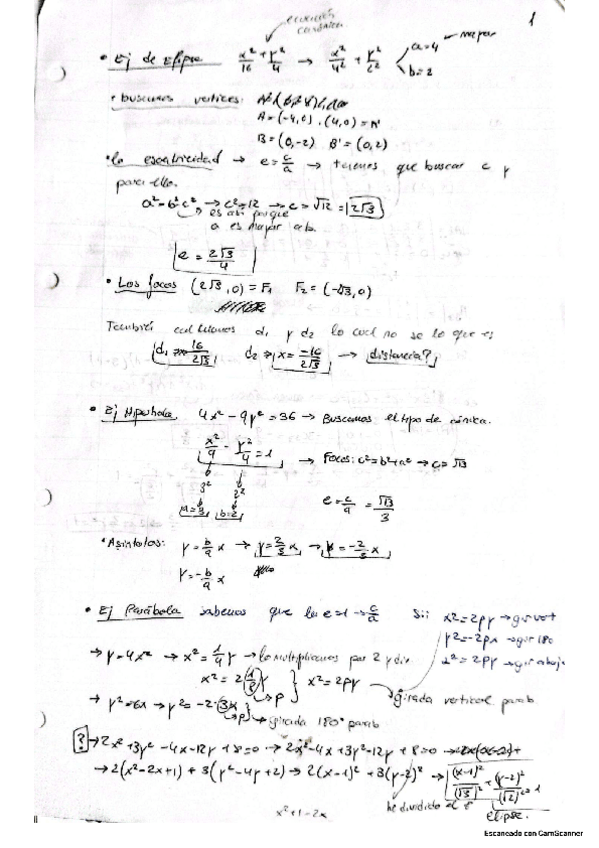 ecuación canónica
1
• Ej de Elipse x²/16 + y²/4 → x²/4² + y²/2² a=4 → mayor
b=2
• buscamos vertices:
A=(-4,0), (4,0)=A'
B=(0,-2) B'=(0,2)
• la escentricidad → e=c/a → tenemos que buscar c y
para ello.
a²=b²+c² → c²=12 → c=√12=2√3
es así porque
a es mayor a b
e = 2√3/4
• Los focos (2√3,0)=F₁ F₂=
También calculamos d₁ y d₂ lo cual no se lo que es
d₁ 16/2√3 d₂ → x=-16/2√3 → distancia?
• Ej Hiperbola 4x²-9y²=36 → Buscamos el tipo de cónica.
x²/9 - y²/4 =1 → Focos: c²=b²+a² → c=√13
3² 2²
a=3 b=2 e=c/a = √13/3
• Asintotas: y=b/a x → y=2/3 x → y=-2/3 x
y=-b/a x
• Ej Parábola sabemos que la e=1 → c/a Sii x²=2py → gir vert
y²=-2px → gir 180
x²=2py → gir abajo
→ y=4x² → x²=1/4 y → lo multiplicamos por 2 y div
x²=2(1/8)y x²=2py → girada vertical parab
→p
→ y²=6x → y²=-2·(3)x
→p → girada 180° parab
? → 2x²+3y²-4x-12y+8=0 → 2x²-4x+3y²-12y+8=0
→ 2(x²-2x+1)+3(y²-4y+2) → 2(x-1)²+3(y-2)² → (x-1)²/(√3)² + (y-2)²/(√2)² = 1
he dividido el
elipse.
x²+1-2x
Escaneado con CamScanner